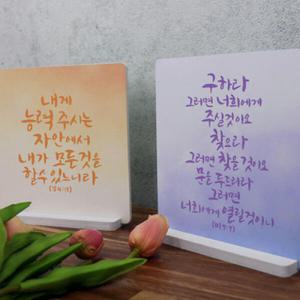 내게
능력 주시는
자 안에서
내가 모든것을
할수 있느니라
(빌4:13)
구하라
그러면 너희에게
주실것이요
찾으라
그러면 찾을것이요
문을 두드리라
그러면
너희에게 열릴것이니
(마7:7)